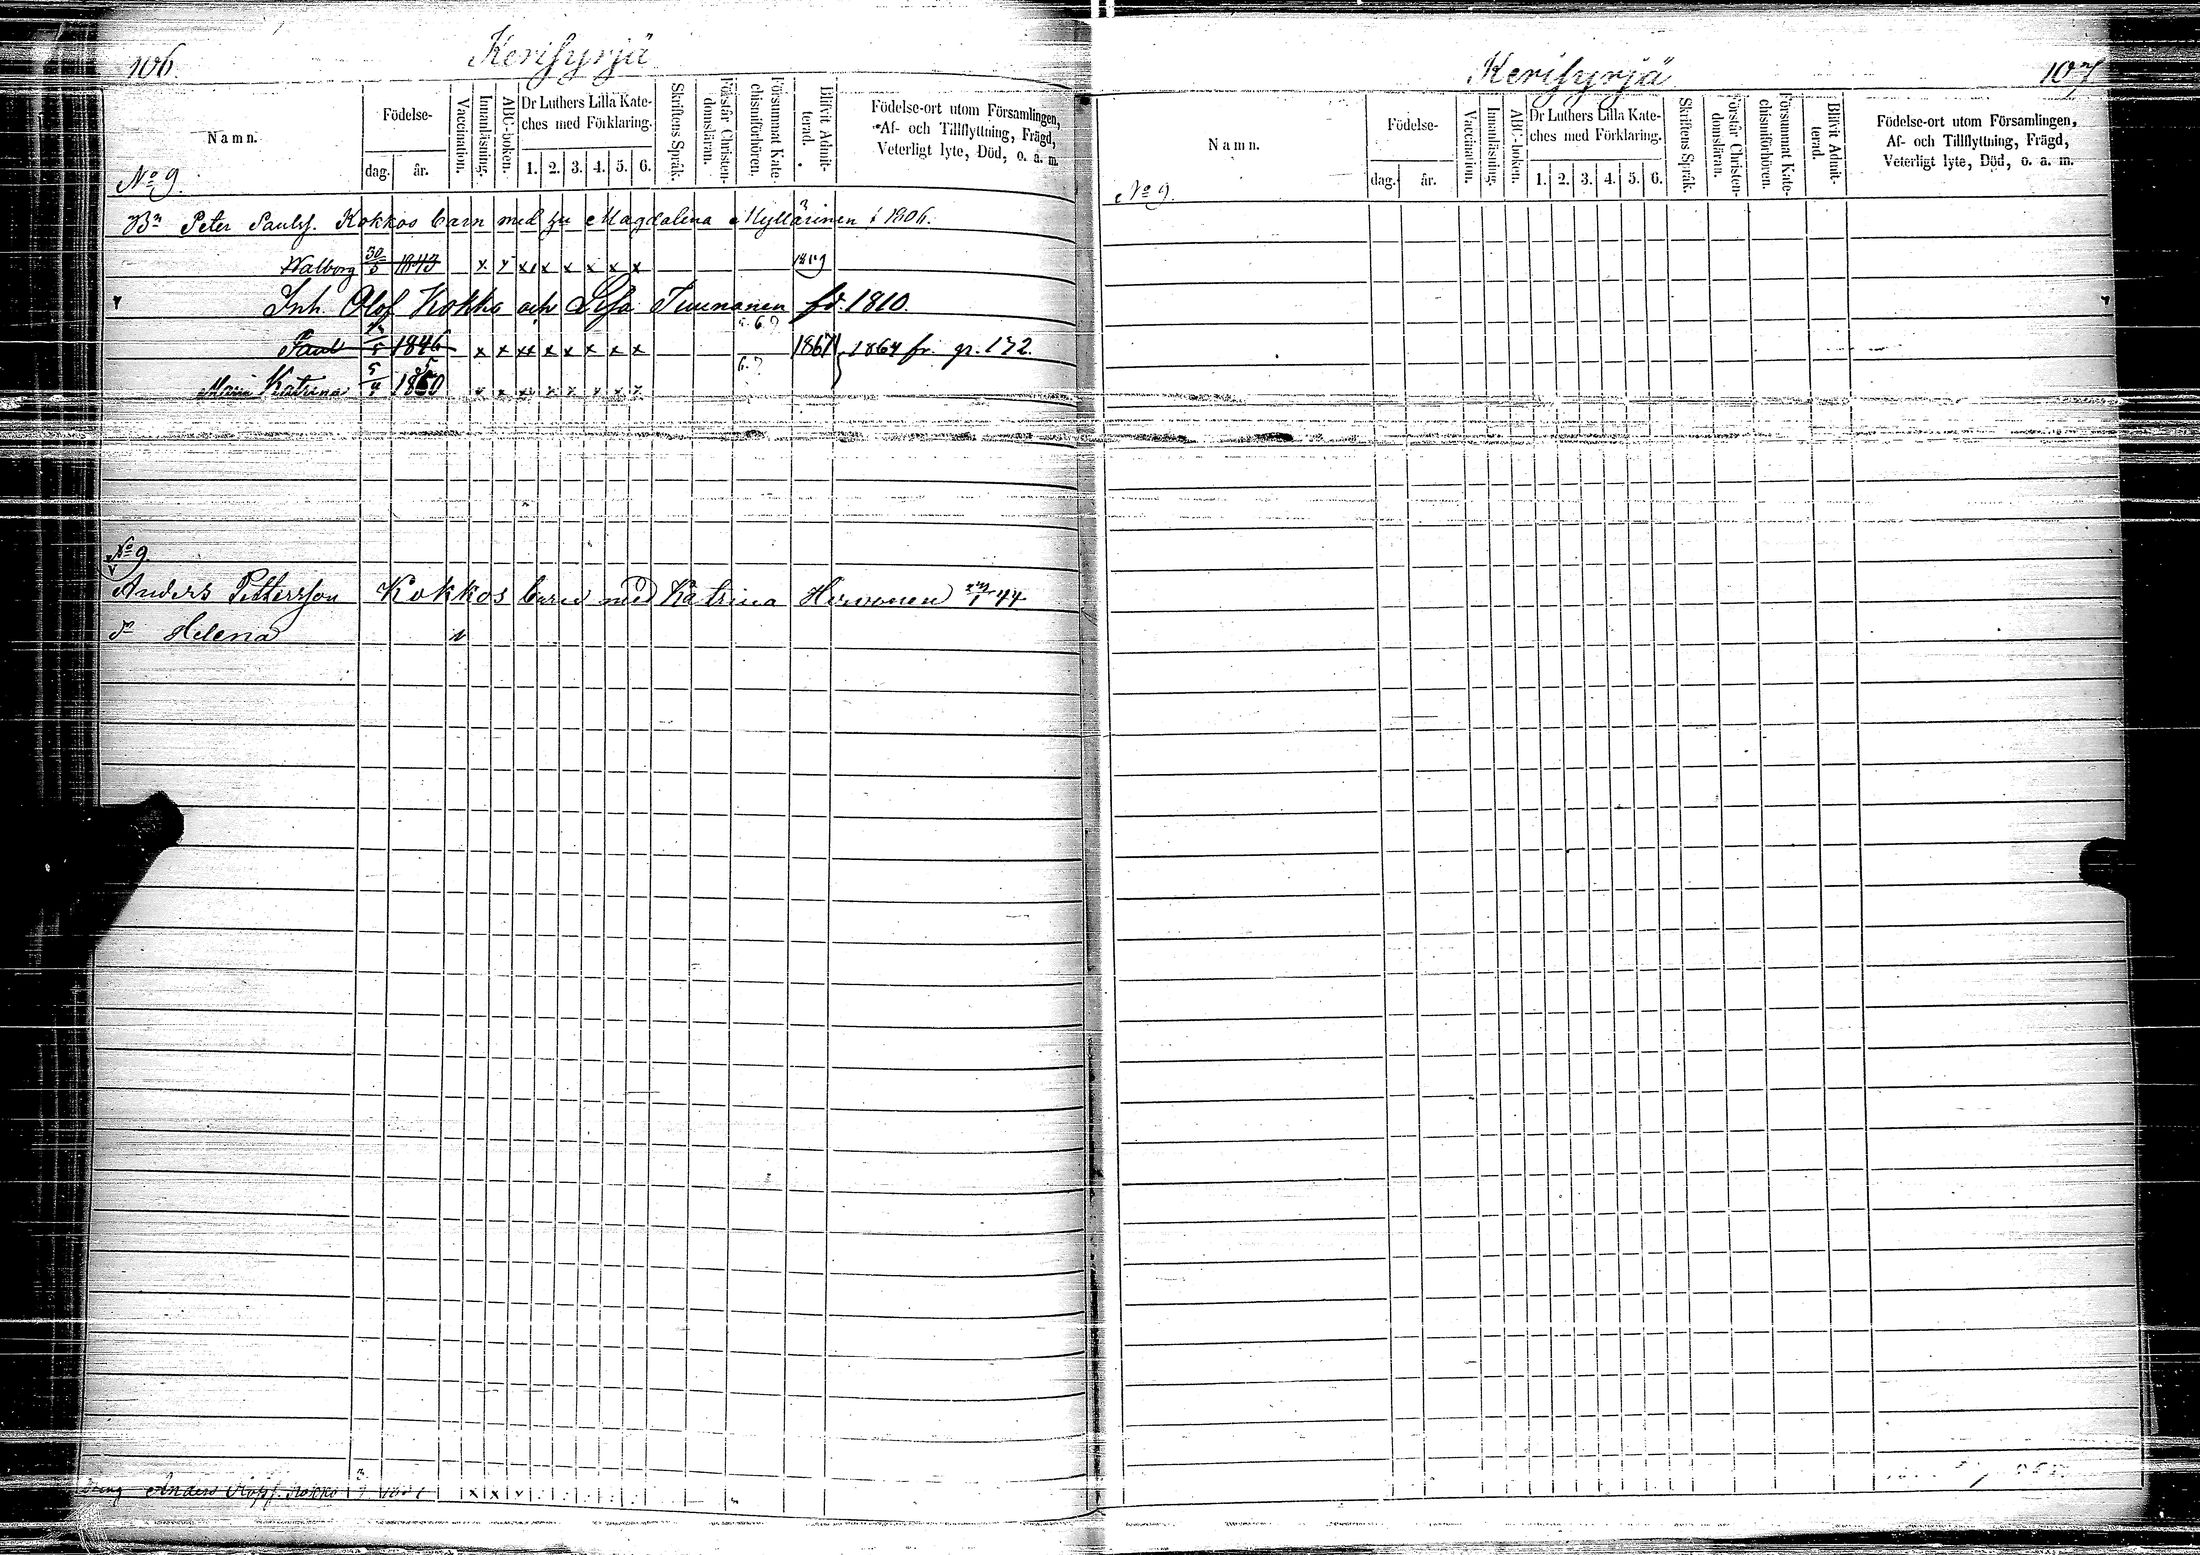 106.
Kerisyrjä
Namn.
Födelse-
dag.
år.
Vaccination.
Innanläsning.
ABC-boken.
Dr Luthers Lilla Kate-
ches med Förklaring.
1. 2. 3. 4. 5. 6.
Skriftens Språk.
Förstår Christen-
domsläran.
Försummat Kate-
chismiförhören.
Blifvit Admit-
terad.
Födelse-ort utom Församlingen,
Af- och Tillflyttning, Frägd,
Veterligt lyte, Död, o. a. m.
No 9.
Bn Peter Paulss. Kokkos barn med hu Magdalina Myllärinen f 1806.
Walborg 30/5 1843 x x x x x x x x
Inh. Olof Kokko och Lisa Tuunanen fö. 1810.
Paul 1846 x x x x x x x x 1867 1864 fr. p. 172.
6.?
Maria Katrina 5/4 1850 x x x x x x x x
No 9
Anders Pettersson Kokkos barn med Katrina Hirvonen 44
dr Helena v
Dreng Anders Kokko x x v
Kerisyrjä
107
Namn.
Födelse-
dag.
år.
Vaccination.
Innanläsning.
ABC-boken.
Dr Luthers Lilla Kate-
ches med Förklaring.
1. 2. 3. 4. 5. 6.
Skriftens Språk.
Förstår Christen-
domsläran.
Försummat Kate-
chismiförhören.
Blifvit Admit-
terad.
Födelse-ort utom Församlingen,
Af- och Tillflyttning, Frägd,
Veterligt lyte, Död, o. a. m.
No 9.